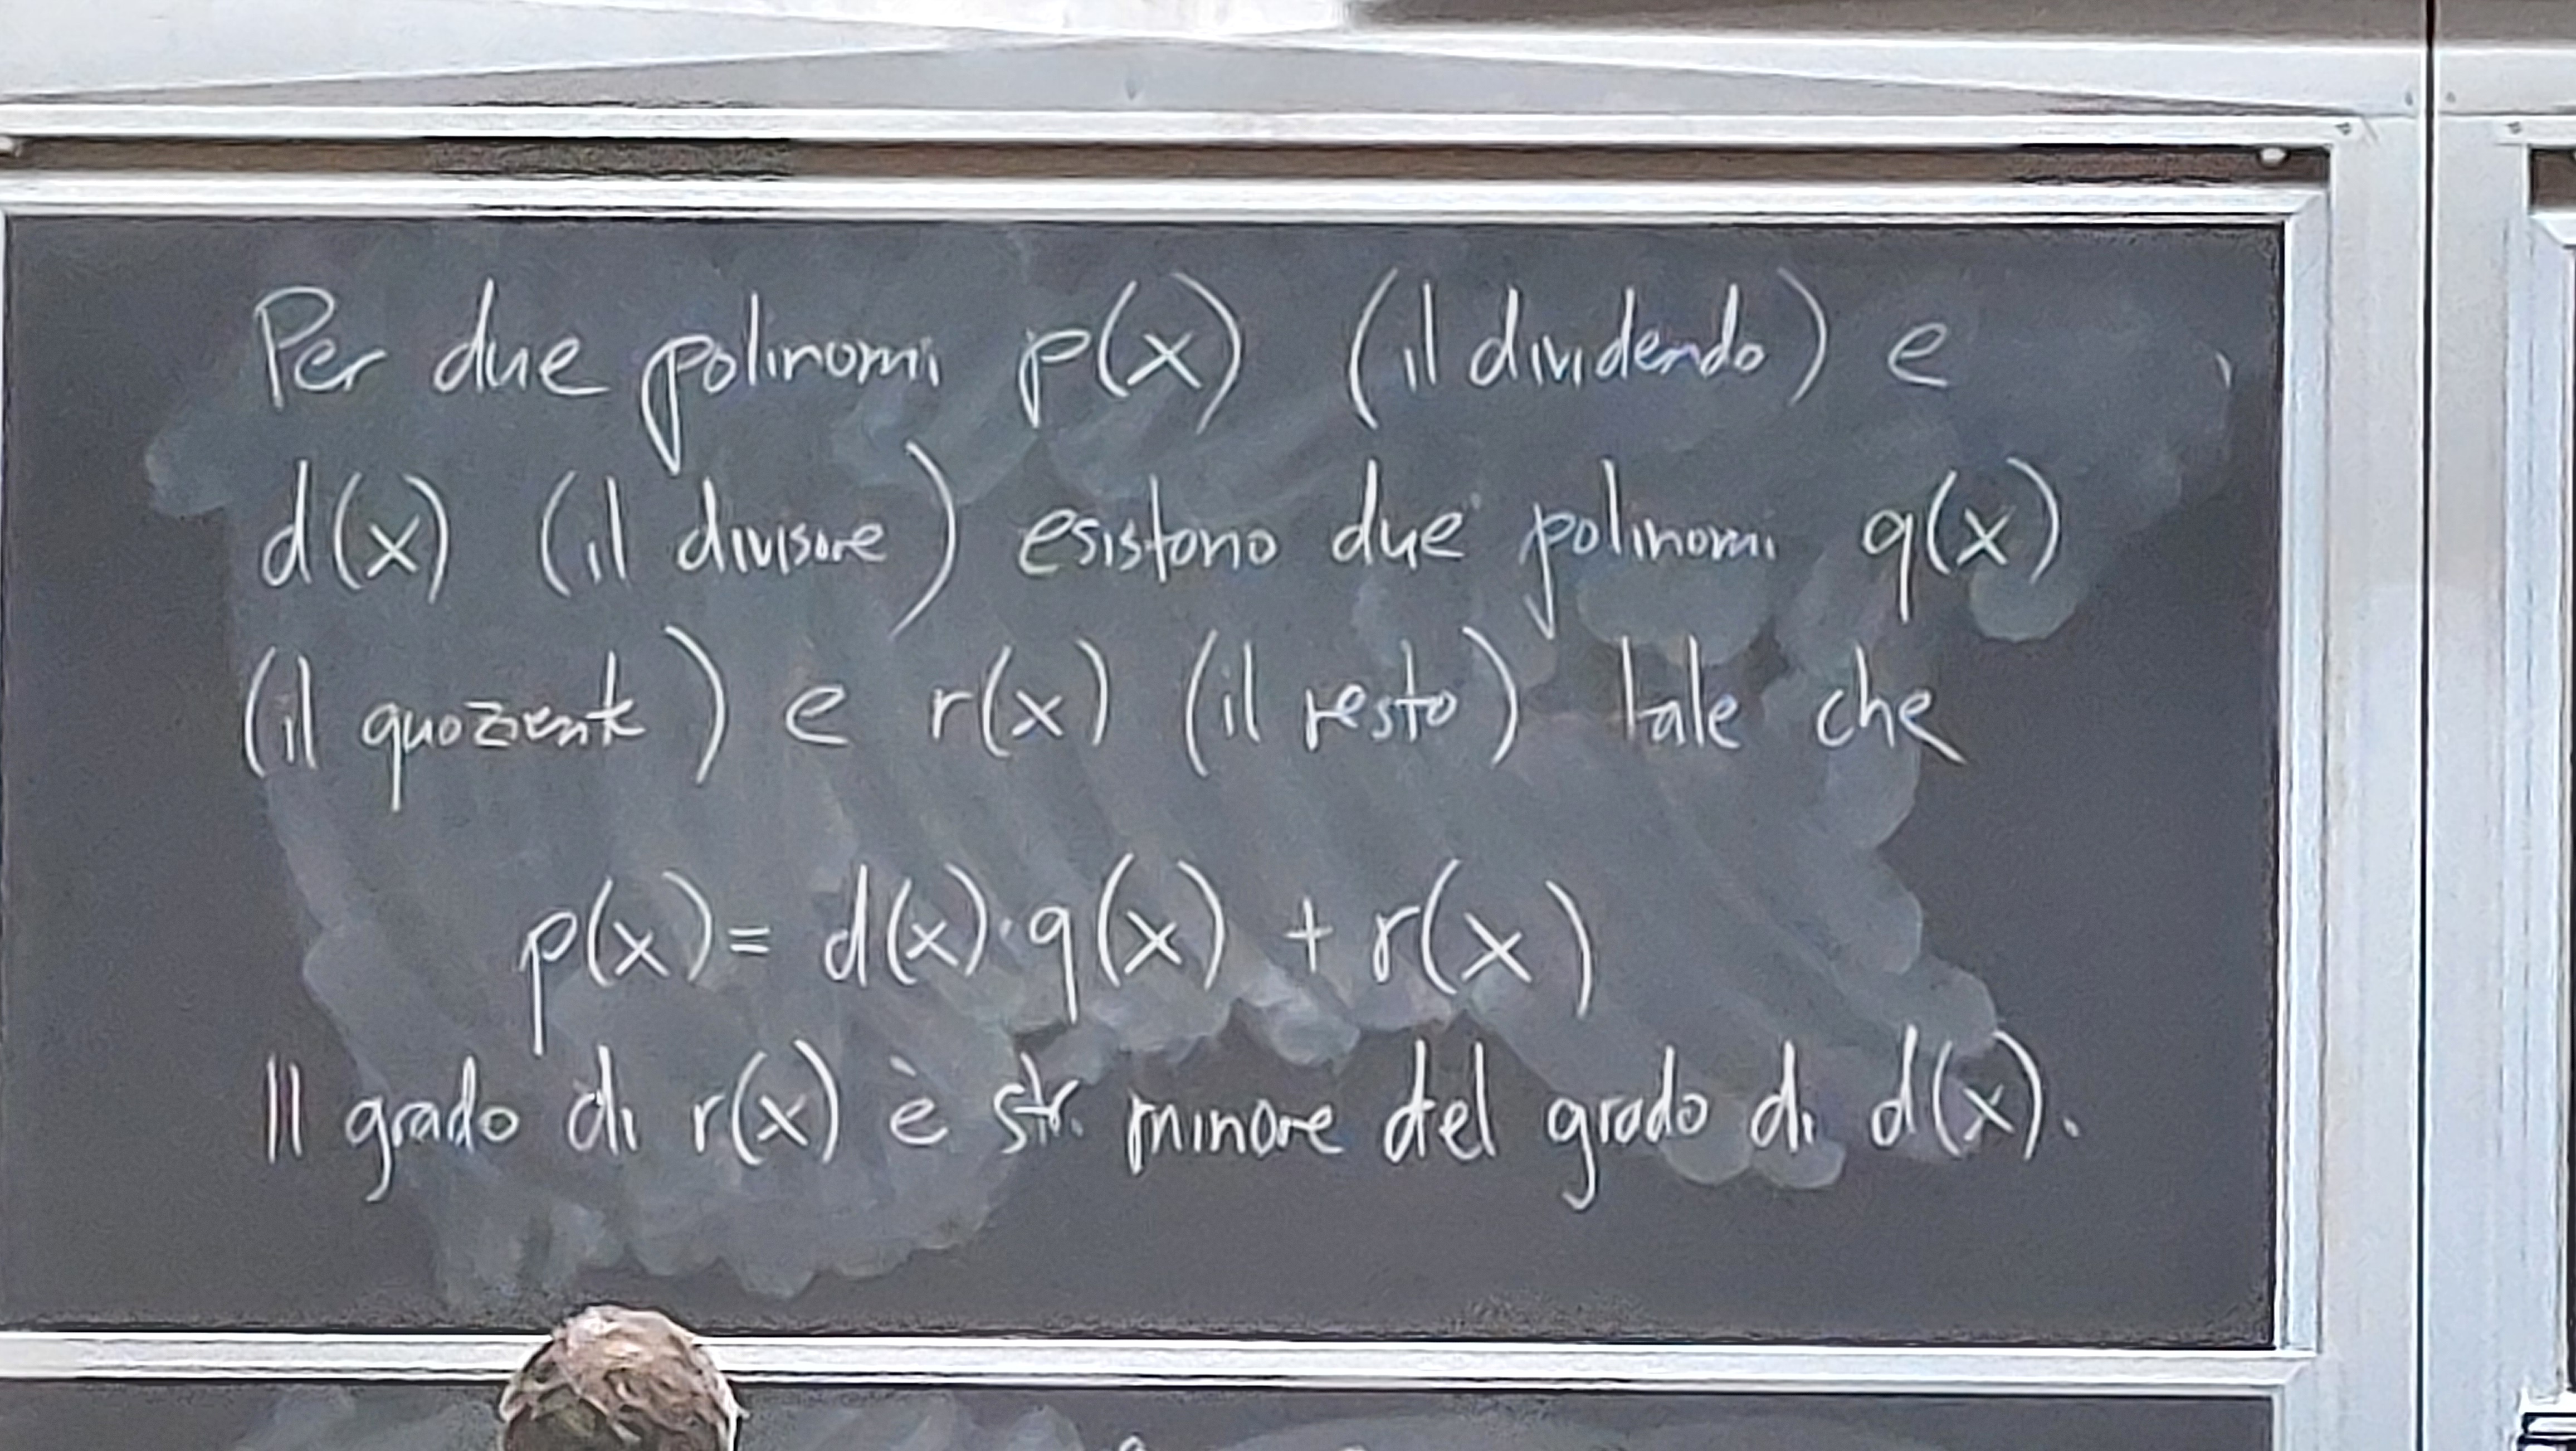 Per due polinomi p(x) (il dividendo) e
d(x) (il divisore) esistono due polinomi q(x)
(il quoziente) e r(x) (il resto) tale che
p(x) = d(x)·q(x) + r(x)
Il grado di r(x) è str. minore del grado di d(x).